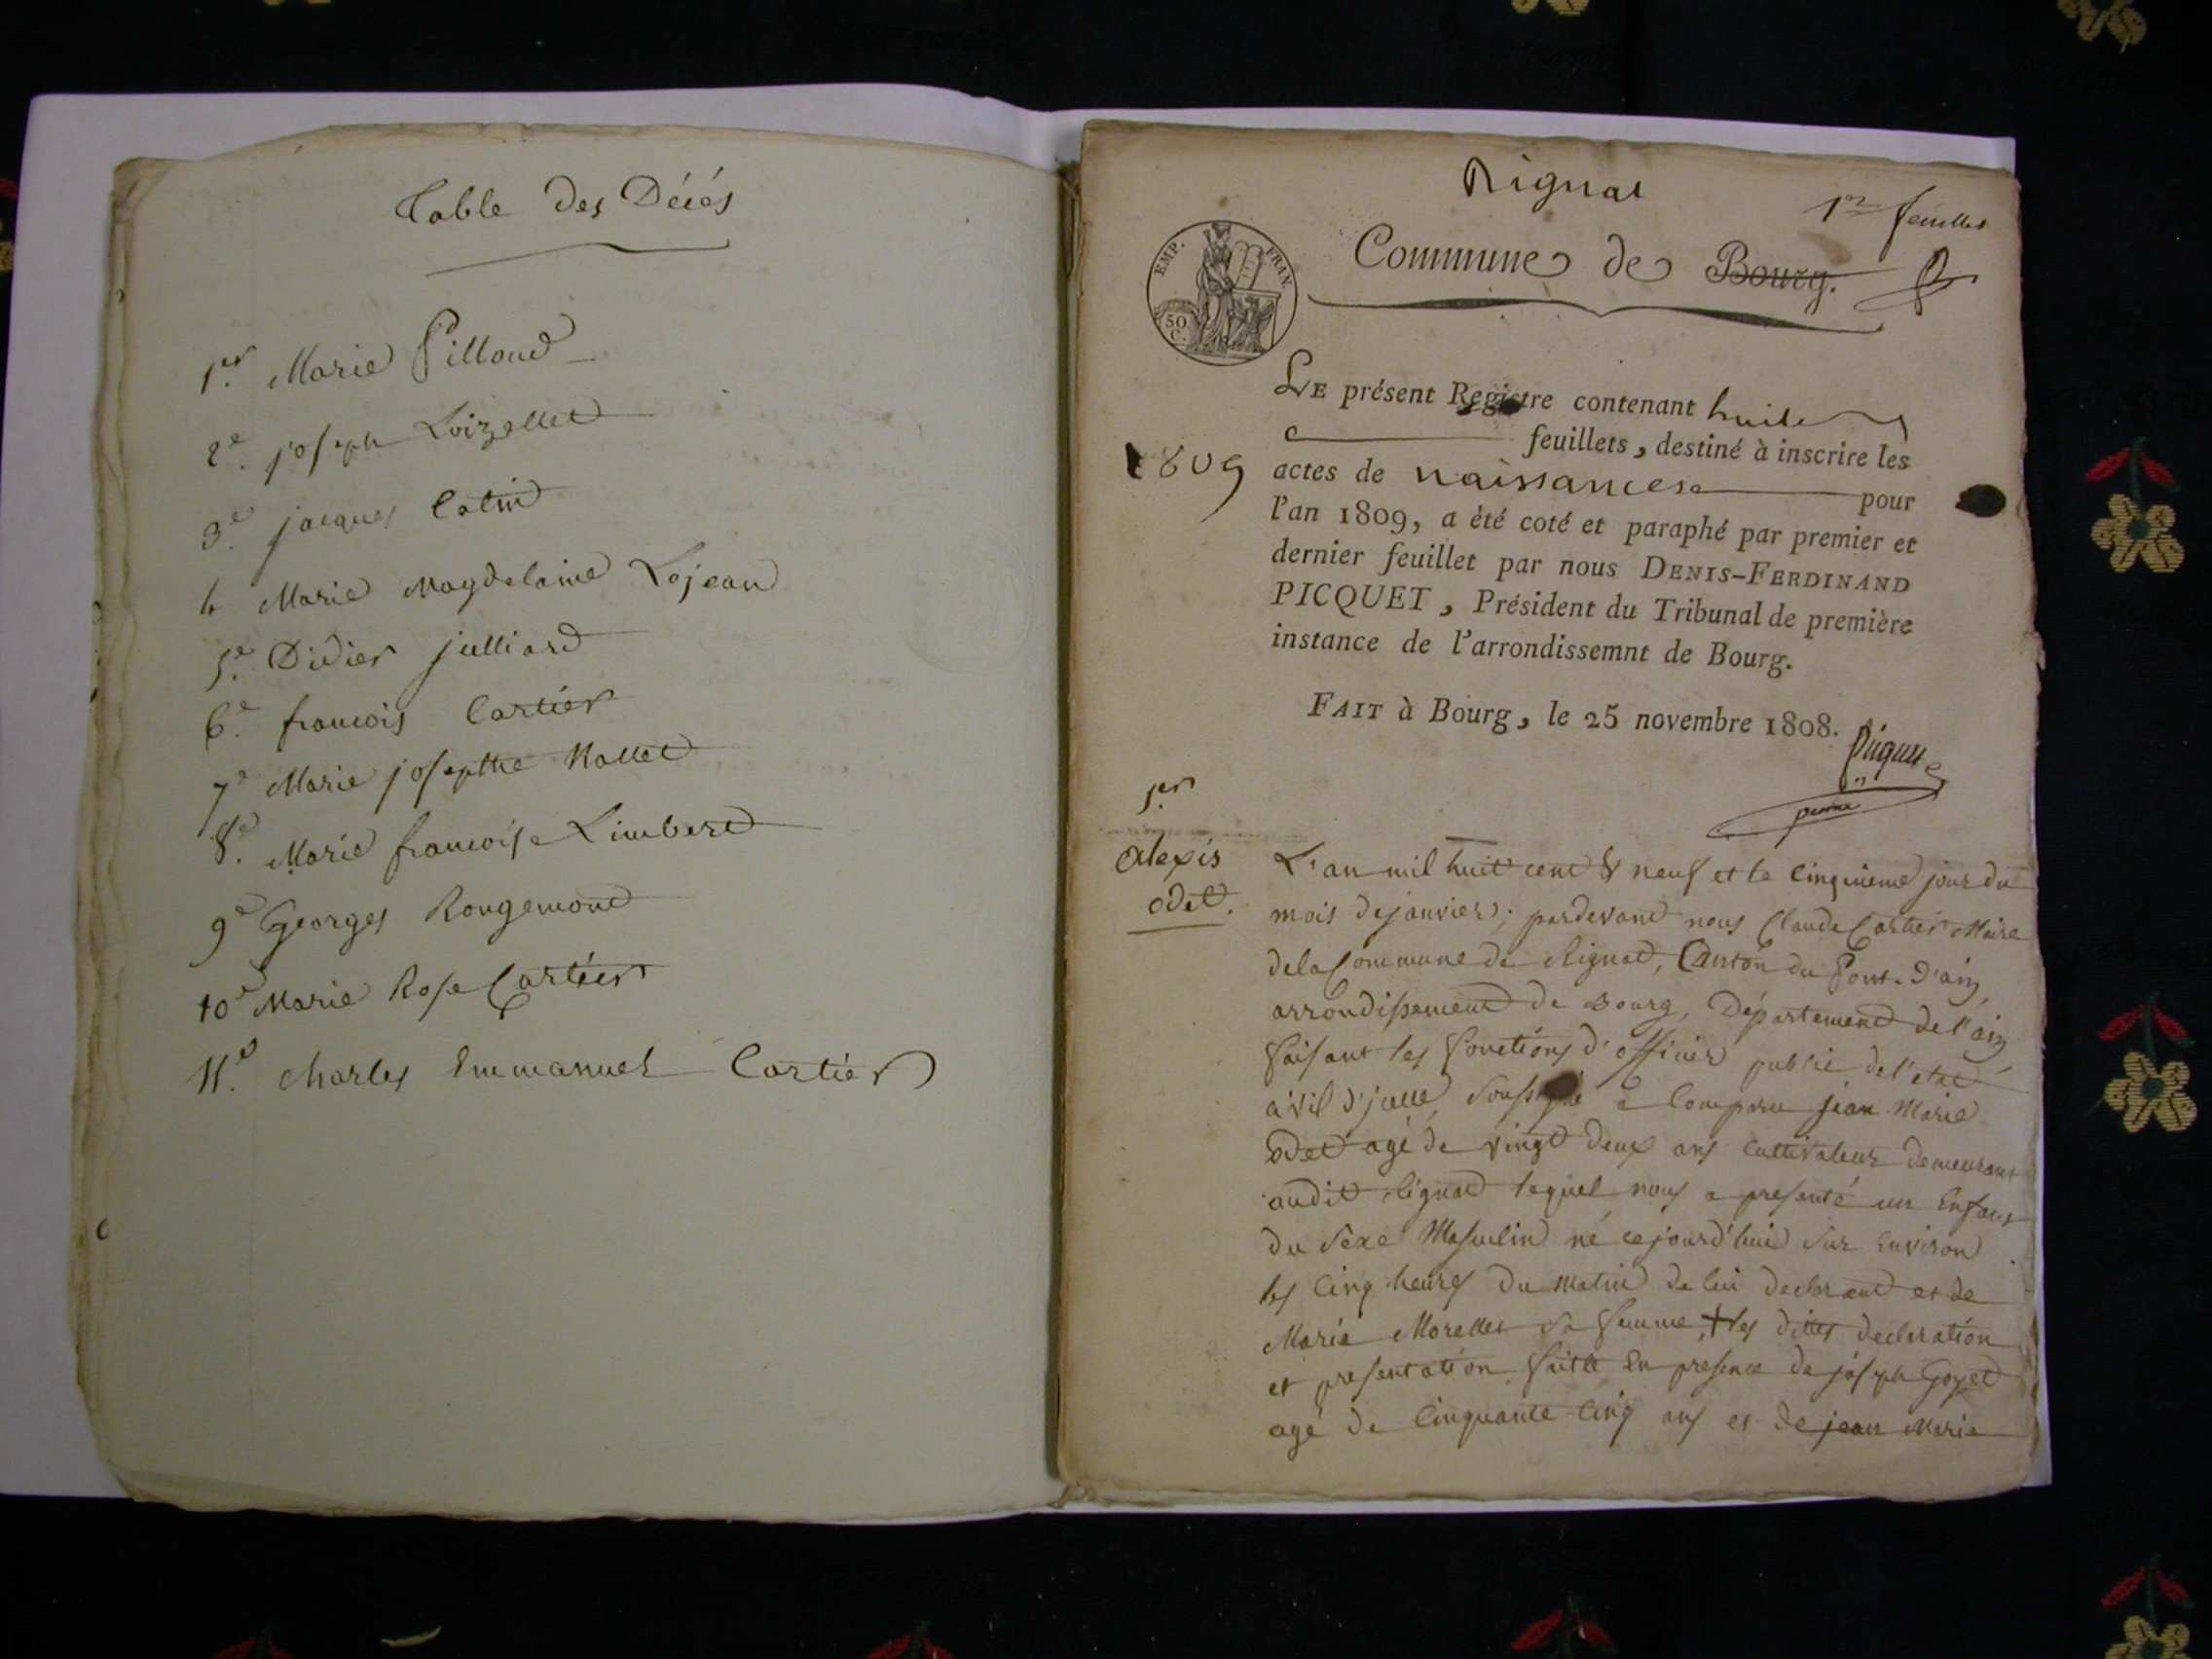 Table des Décés
1er. Marie Pilloud
2e. joseph Loizellet
3e. jacques Catin
4 Marie Magdelaine Lojean
5e. Didier julliard
6e. francois Cartier
7e Marie josepthe Nallet
8e. Marie francoise Limbert
9e Georges Rougemont
10e Marie Rose Cartier
11e. Charles Emmanuel Cartier
Rignat
1er feuillet
EMP. FRAN.
50 C.
Commune de Bourg.
LE présent Registre contenant huit
feuillets, destiné à inscrire les
1809
actes de naissances pour
l'an 1809, a été coté et paraphé par premier et
dernier feuillet par nous DENIS-FERDINAND
PICQUET, Président du Tribunal de première
instance de l'arrondissemnt de Bourg.
FAIT à Bourg, le 25 novembre 1808.
Picquet
1er.
alexis
odet.
L'an mil huit cent & neuf et le Cinquieme jour du
mois de janvier; pardevant nous Claude Cartier Maire
de la Commune de Rignat, Canton du Pont-d'ain,
arrondissement de Bourg, Département de l'ain
faisant les fonctions d'officier public de l'etat
civil d'jcelle, soussigné a Comparu jean Marie
odet agé de vingt deux ans cultivateur demeurant
audit Rignat lequel nous a presanté un Enfant
du sexe Masculin né cejourd'hui sur environ
les Cinq heures du matin de lui declarant et de
Marie Morellet sa femme, + les dittes declaration
et presentation faitte En presence de joseph Goyet
agé de Cinquante Cinq ans et de jean Marie